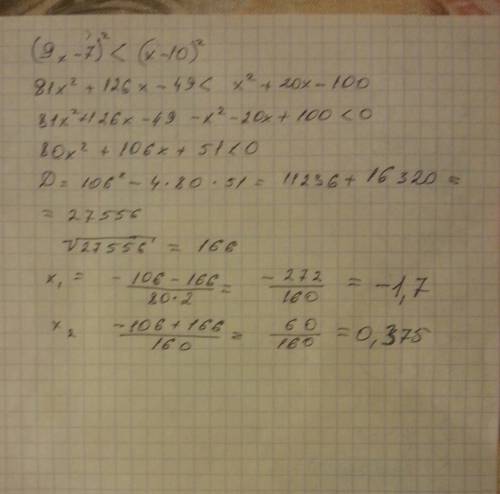 (9x-7)² < (x-10)²
81x² + 126x - 49 < x² + 20x - 100
81x² + 126x - 49 - x² - 20x + 100 < 0
80x² + 106x + 51 < 0
D = 106² - 4·80·51 = 11236 + 16320 =
= 27556
√27556 = 166
x₁ = (-106-166)/(80·2) = -272/160 = -1,7
x₂ (-106+166)/160 = 60/160 = 0,375